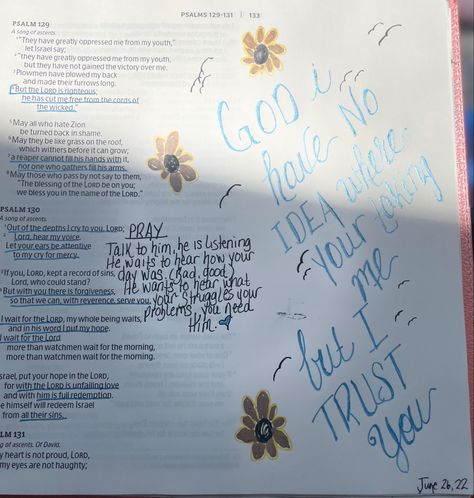 PSALMS 129-131 | 133
PSALM 129
A song of ascents.
1 "They have greatly oppressed me from my youth,"
let Israel say;
2 "they have greatly oppressed me from my youth,
but they have not gained the victory over me.
3 Plowmen have plowed my back
and made their furrows long.
4 But the LORD is righteous;
he has cut me free from the cords of
the wicked."
5 May all who hate Zion
be turned back in shame.
6 May they be like grass on the roof,
which withers before it can grow;
7 a reaper cannot fill his hands with it,
nor one who gathers fill his arms.
8 May those who pass by not say to them,
"The blessing of the LORD be on you;
we bless you in the name of the LORD."
PSALM 130
A song of ascents.
1 Out of the depths I cry to you, LORD;
2 Lord, hear my voice.
Let your ears be attentive
to my cry for mercy.
3 If you, LORD, kept a record of sins,
Lord, who could stand?
4 But with you there is forgiveness,
so that we can, with reverence, serve you.
I wait for the LORD, my whole being waits,
and in his word I put my hope.
I wait for the Lord
more than watchmen wait for the morning,
more than watchmen wait for the morning.
Israel, put your hope in the LORD,
for with the LORD is unfailing love
and with him is full redemption.
He himself will redeem Israel
from all their sins.
LM 131
g of ascents. Of David.
y heart is not proud, LORD,
my eyes are not haughty;
PRAY
Talk to him, he is listening
He waits to hear how your
day was. (Bad, good)
He wants to hear what
your struggles your
problems, you need
Him.
GOD i
have NO
IDEA where
your taking
me
but I
TRUST
You
June 26, 22